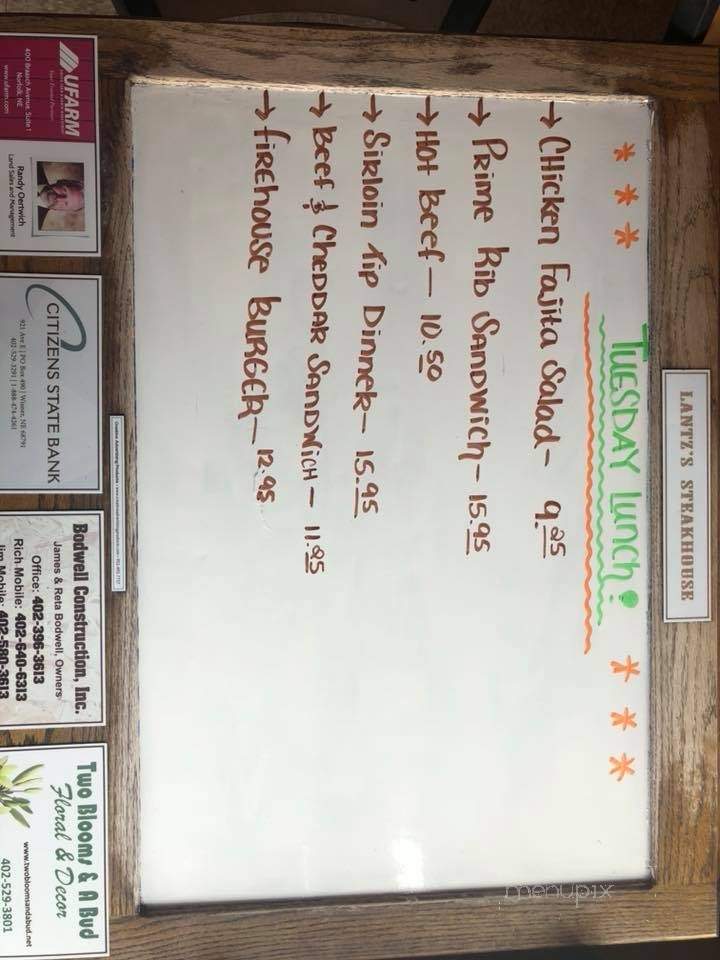 LANTZ'S STEAKHOUSE
* * * TUESDAY Lunch! * * *
→ CHicken Fajita Salad - 9.25
→ PRime Rib SANDWich - 15.95
→ Hot Beef - 10.50
→ SiRloin Tip DinneR - 15.95
→ Beef & CheDDAR SANDWicH - 11.25
→ fiReHouse BuRGeR - 12.95
UFARM
400 Braasch Avenue, Suite 1
Norfolk, NE
www.ufarm.com
Randy Oertwich
Land Sales and Management
CITIZENS STATE BANK
921 Ave E | PO Box 490 | Wisner, NE 68791
402-529-3291 | 1-888-474-4261
Bodwell Construction, Inc.
James & Reta Bodwell, Owners
Office: 402-396-3613
Rich Mobile: 402-640-6313
Jim Mobile: 402-580-3613
Two Blooms & A Bud
Floral & Decor
www.twobloomsandabud.net
402-529-3801
menupix